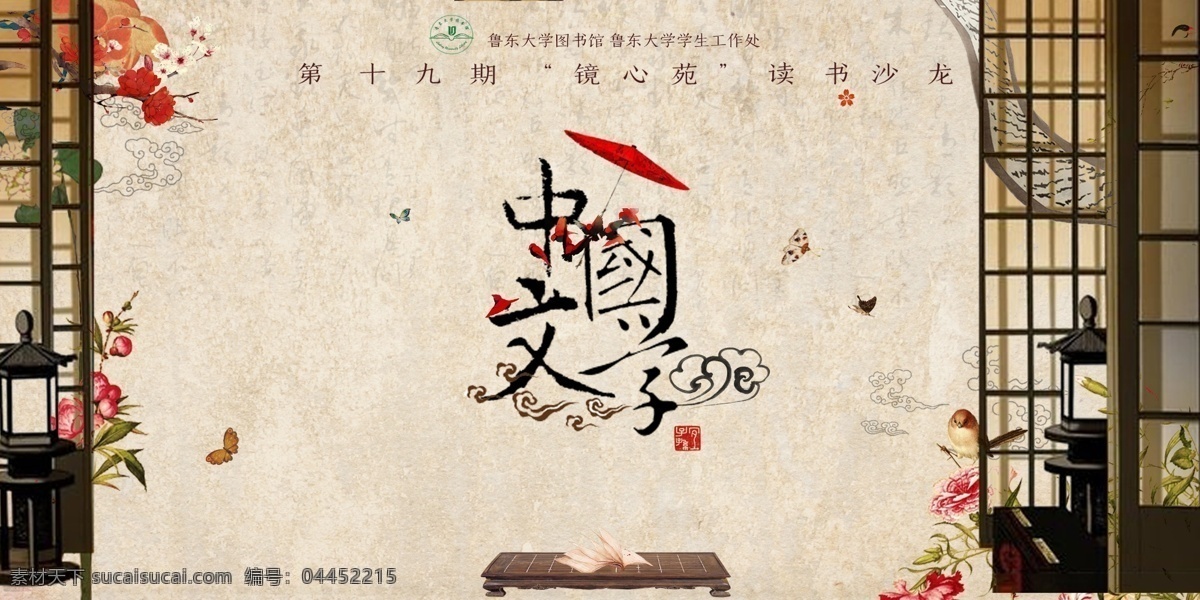 鲁东大学图书馆 鲁东大学学生工作处
第十九期“镜心苑”读书沙龙
中國
文学
素材天下 sucaisucai.com 编号：04452215